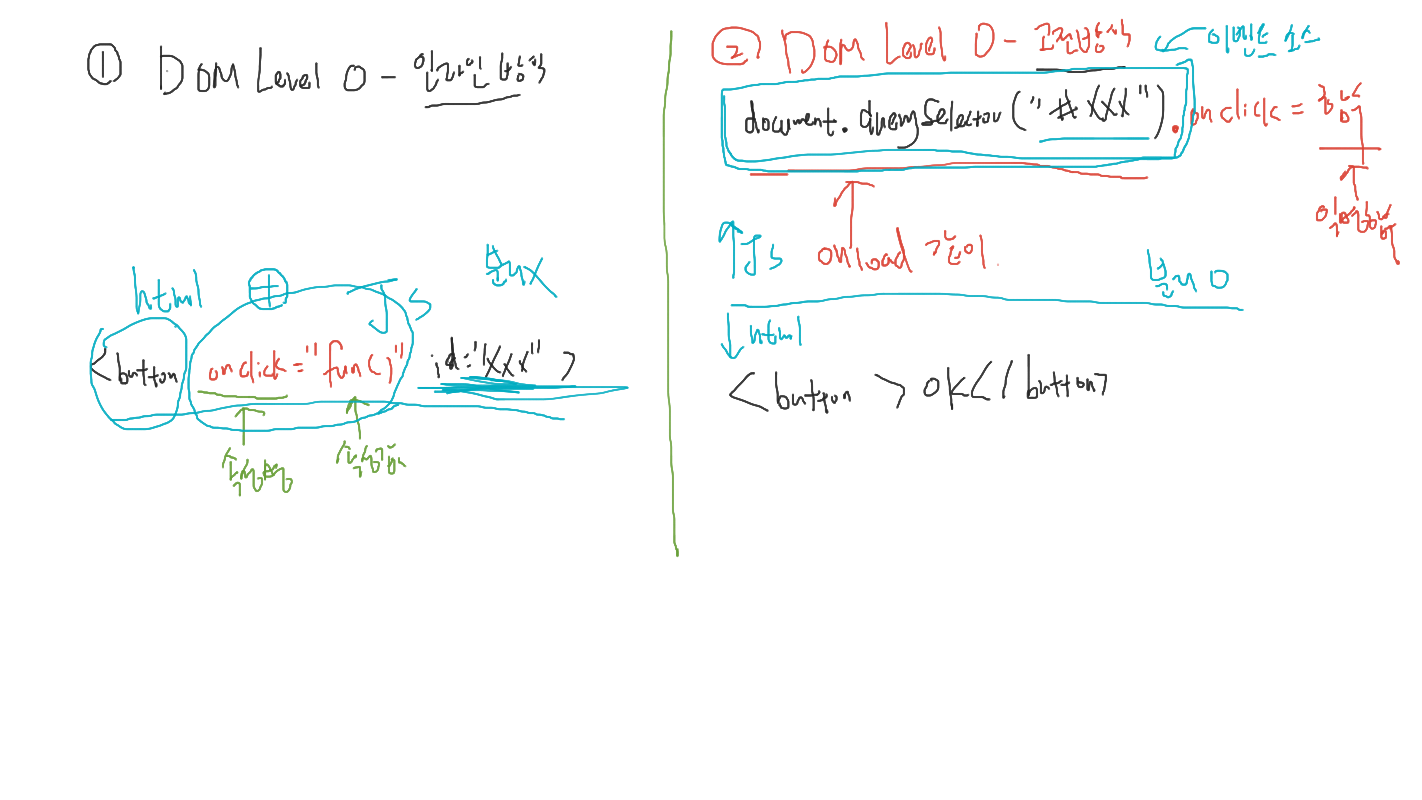 ① DOM Level 0 - 인라인 방식
html + JS 분리X
<button onclick="fun()" id="xxx" >
속성명 속성값
② DOM Level 0 - 고전방식 이벤트 소스
document.querySelector("#XXX").onclick = 함수
익명함수
JS onload 같이 분리 O
html
<button > ok</button>